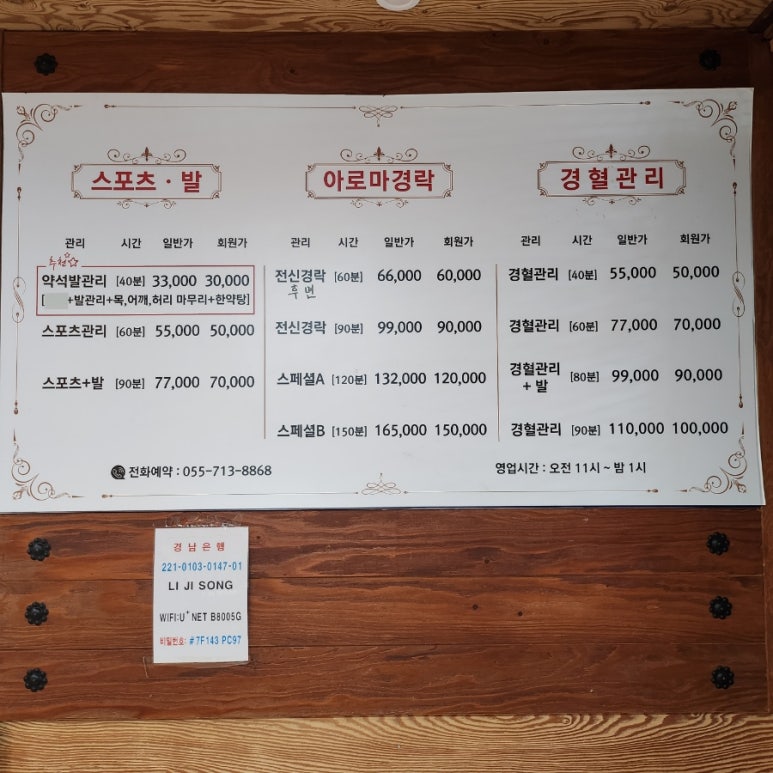 스포츠 · 발
관리 시간 일반가 회원가
추천☆
약석발관리 [40분] 33,000 30,000
[ +발관리+목,어깨,허리 마무리+한약탕]
스포츠관리 [60분] 55,000 50,000
스포츠+발 [90분] 77,000 70,000
아로마경락
관리 시간 일반가 회원가
전신경락 [60분] 66,000 60,000
후면
전신경락 [90분] 99,000 90,000
스페셜A [120분] 132,000 120,000
스페셜B [150분] 165,000 150,000
경혈관리
관리 시간 일반가 회원가
경혈관리 [40분] 55,000 50,000
경혈관리 [60분] 77,000 70,000
경혈관리
+ 발 [80분] 99,000 90,000
경혈관리 [90분] 110,000 100,000
전화예약 : 055-713-8868
영업시간 : 오전 11시 ~ 밤 1시
경남은행
221-0103-0147-01
LI JI SONG
WIFI:U+NET B8005G
비밀번호: #7F143 PC97